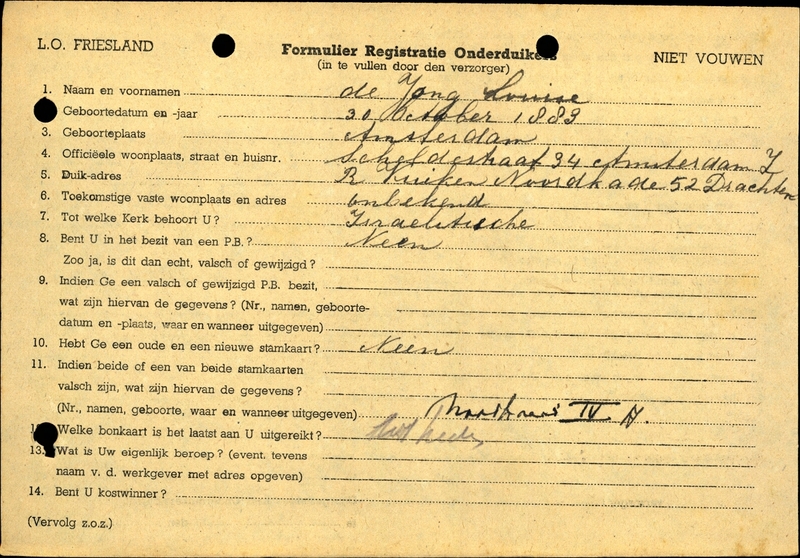 L.O. FRIESLAND
Formulier Registratie Onderduikers
(in te vullen door den verzorger)
NIET VOUWEN
1. Naam en voornamen de Jong Louise
Geboortedatum en -jaar 30 October 1883
3. Geboorteplaats Amsterdam
4. Officiëele woonplaats, straat en huisnr. Scheldestraat 34 Amsterdam Z
5. Duik-adres R Kuiken Noordkade 52 Drachten
6. Toekomstige vaste woonplaats en adres onbekend
7. Tot welke Kerk behoort U? Israelitische
8. Bent U in het bezit van een P.B.? Neen
Zoo ja, is dit dan echt, valsch of gewijzigd?
9. Indien Ge een valsch of gewijzigd P.B. bezit,
wat zijn hiervan de gegevens? (Nr., namen, geboorte-
datum en -plaats, waar en wanneer uitgegeven)
10. Hebt Ge een oude en een nieuwe stamkaart? Neen
11. Indien beide of een van beide stamkaarten
valsch zijn, wat zijn hiervan de gegevens?
(Nr., namen, geboorte, waar en wanneer uitgegeven) IV
1 Welke bonkaart is het laatst aan U uitgereikt?
13. Wat is Uw eigenlijk beroep? (event. tevens
naam v. d. werkgever met adres opgeven)
14. Bent U kostwinner?
(Vervolg z.o.z.)